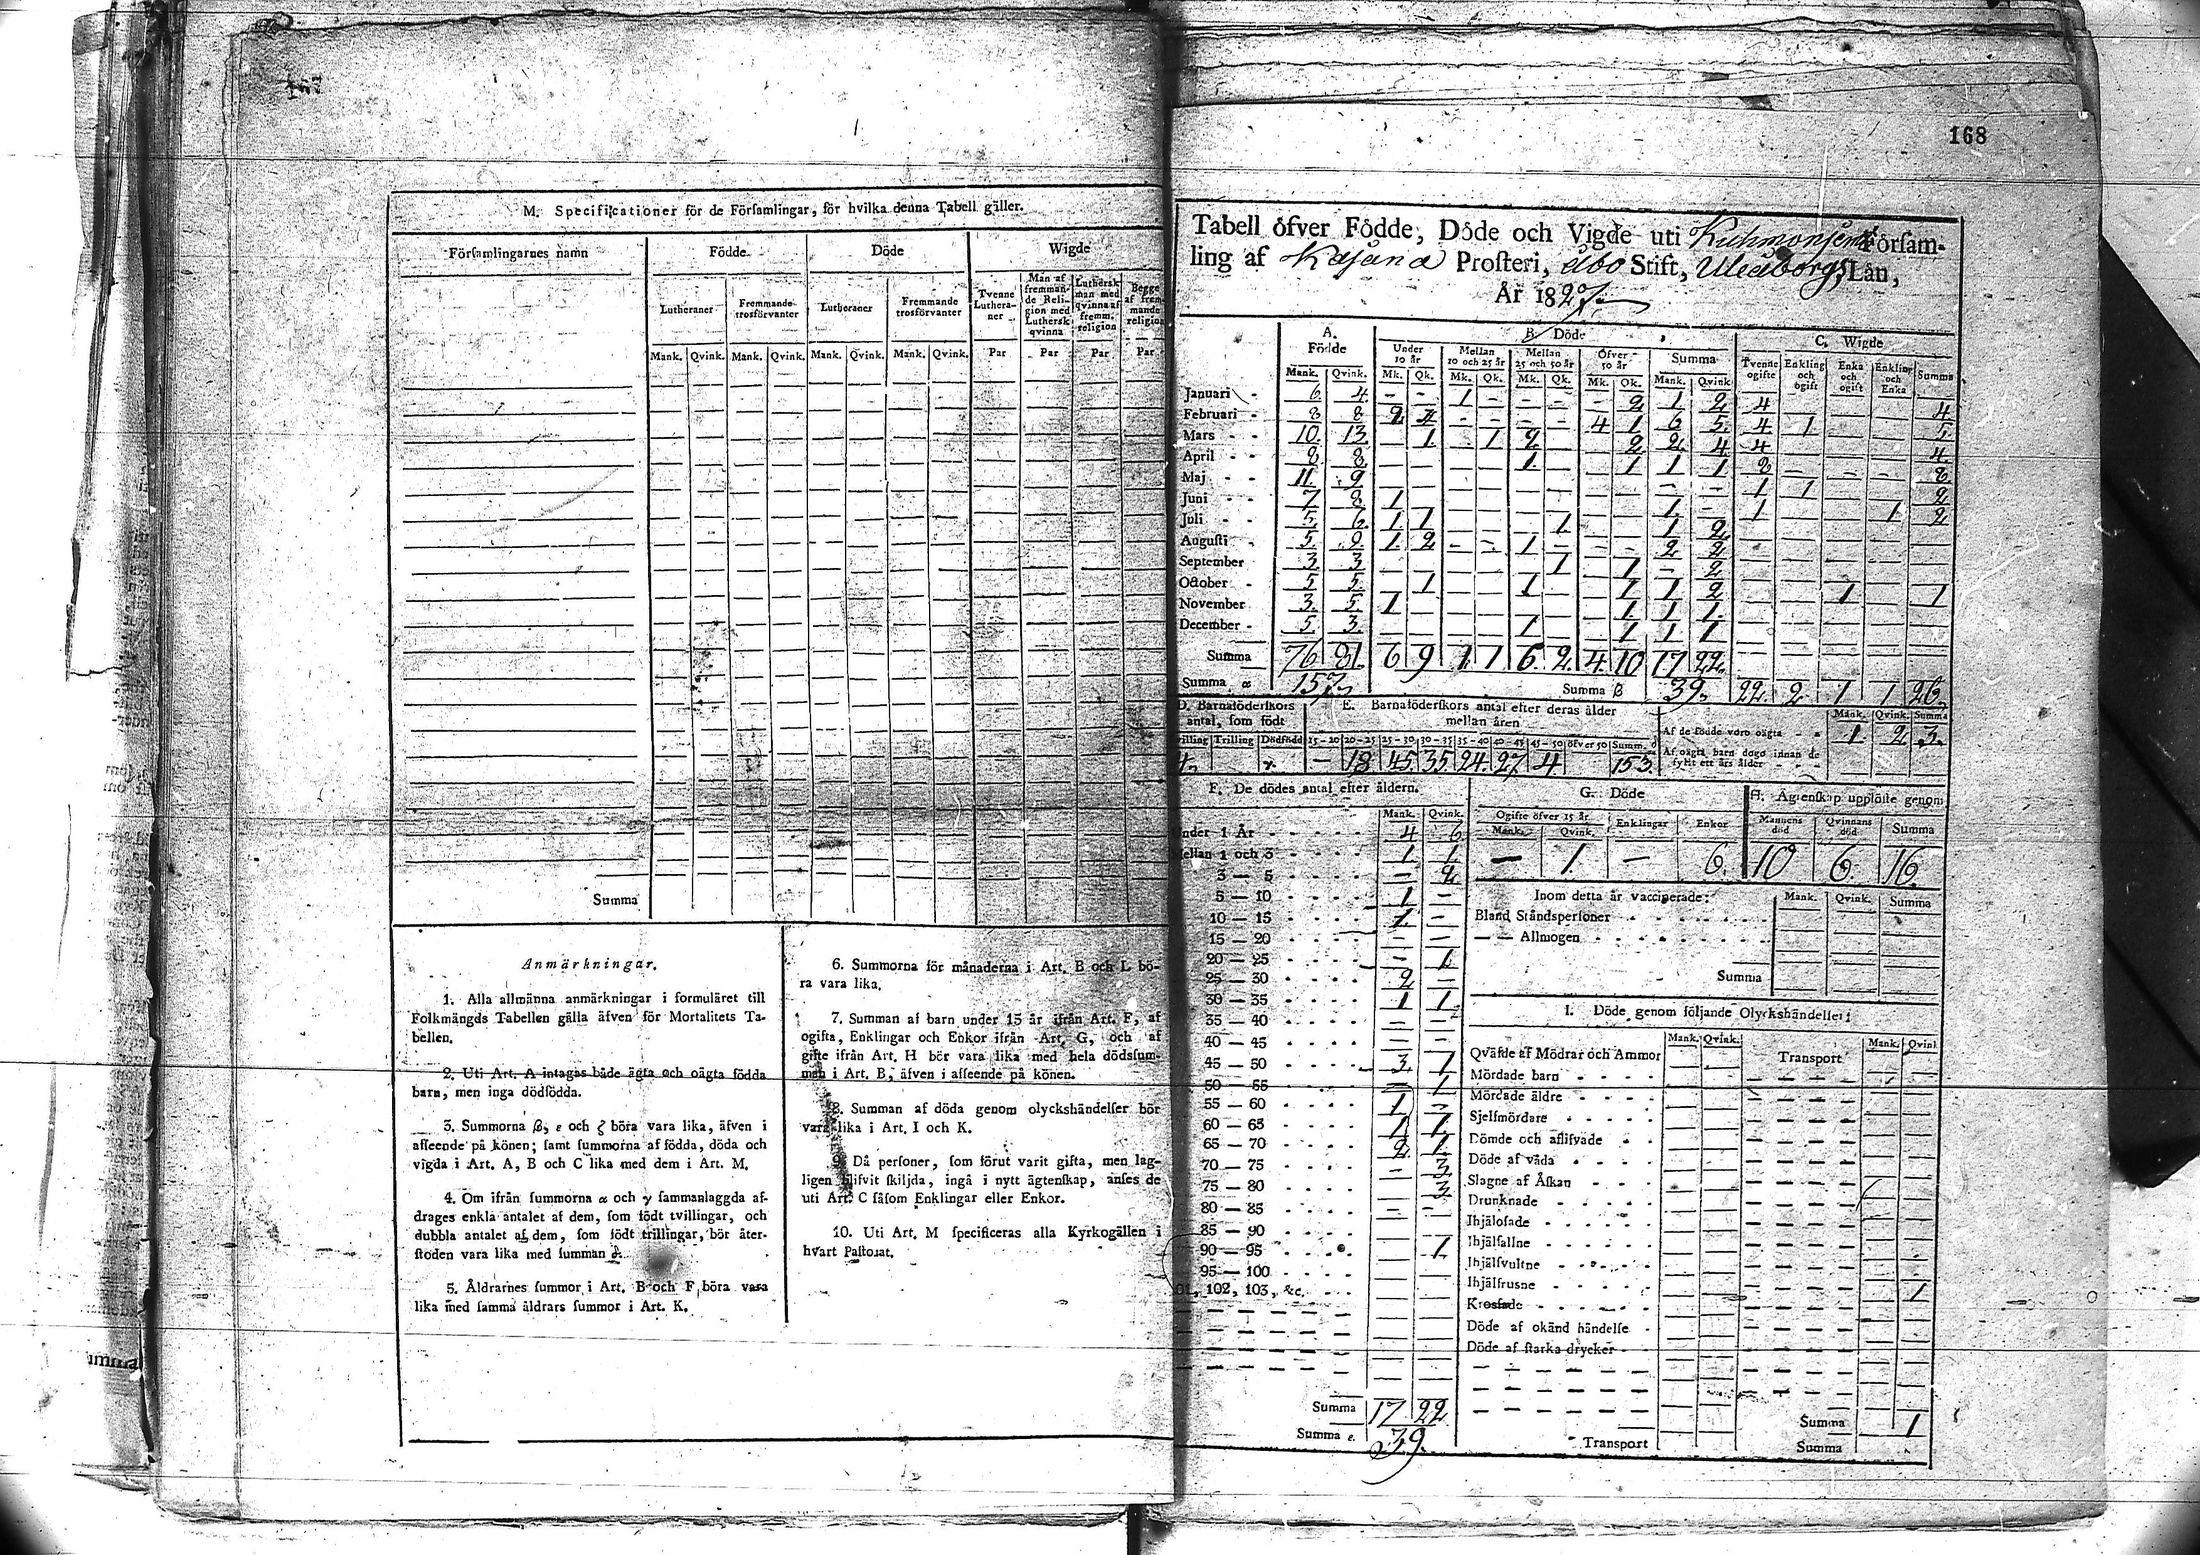 168
M. Specificationer för de Församlingar, för hvilka denna Tabell gäller.
Församlingarnes namn
Födde
Döde
Wigde
Lutheraner
Fremmande trosförvanter
Lutheraner
Fremmande trosförvanter
Tvenne Lutheraner
Man af fremmande Religion med Luthersk qvinna
Luthersk man med qvinna af fremm. religion
Begge af fremmande religion
Mank. Qvink. Mank. Qvink. Mank. Qvink. Mank. Qvink. Par Par Par Par
Summa
Anmärkningar.
1. Alla allmänna anmärkningar i formuläret till
Folkmängds Tabellen gälla äfven för Mortalitets Ta-
bellen.
2. Uti Art. A intagas både ägta och oägta födda
barn, men inga dödfödda.
3. Summorna β, ε och ζ böra vara lika, äfven i
afseende på könen; samt summorna af födda, döda och
vigda i Art. A, B och C lika med dem i Art. M.
4. Om ifrån summorna α och γ sammanlaggda af-
drages enkla antalet af dem, som födt tvillingar, och
dubbla antalet af dem, som födt trillingar, bör åter-
stoden vara lika med summan δ.
5. Åldrarnes summor i Art. B och F böra vara
lika med samma åldrars summor i Art. K.
6. Summorna för månaderna i Art. B och L bö-
ra vara lika.
7. Summan af barn under 15 år ifrån Art. F, af
ogifta, Enklingar och Enkor ifrån Art. G, och af
gifte ifrån Art. H bör vara lika med hela dödssum-
man i Art. B, äfven i afseende på könen.
8. Summan af döda genom olyckshändelser bör
vara lika i Art. I och K.
9. Då personer, som förut varit gifta, men lag-
ligen blifvit skiljda, ingå i nytt ägtenskap, anses de
uti Art. C såsom Enklingar eller Enkor.
10. Uti Art. M specificeras alla Kyrkogällen i
hvart Pastorat.
Tabell öfver Födde, Döde och Vigde uti Kuhmoniemi Försam-
ling af Kajana Prosteri, Åbo Stift, Uleåborgs Län,
År 1827.
A. Födde
B. Döde
C. Wigde
Under 10 år
Mellan 10 och 25 år
Mellan 25 och 50 år
Öfver 50 år
Summa
Tvenne ogifte
Enkling och ogift
Enka och ogift
Enkling och Enka
Summa
Mank. Qvink. Mk. Qk. Mk. Qk. Mk. Qk. Mk. Qk. Mank. Qvink.
Januari 6 4 - - 1 - - - - 2 1 2 4 4
Februari 8 8 2 4 - - - - 4 1 6 5 4 1 5
Mars 10 13 - 1 - 1 2 - - 2 2 4 4 4
April 8 8 1 1 1 1 2 2
Maj 11 9 1 1 2
Juni 7 8 1 1 - 1 1 2
Juli 5 6 1 1 1 1 2
Augusti 5 9 1 2 - - 1 2 2
September 3 3 1 1 - 2
October 5 5 1 1 1 1 2 1 1
November 3 5 1 1 1 1
December 5 3 1 1 1 1
Summa 76 81 6 9 1 1 6 2 4 10 17 22
Summa α 157
Summa β 39 22 2 1 1 26
D. Barnaföderskors antal, som födt
E. Barnaföderskors antal efter deras ålder mellan åren
Trilling Dödfödd 15-20 20-25 25-30 30-35 35-40 40-45 45-50 öfver 50 Summ. δ
4 - 18 45 35 24 27 4 153
Mank. Qvink. Summa
Af de födde voro oägta 1 2 3
Af oägta barn dogo innan de
fyllt ett års ålder
F. De dödes antal efter åldern.
Mank. Qvink.
Under 1 År 4 6
Mellan 1 och 3 1 1
3 — 5 - 2
5 — 10 1 -
10 — 15 1 -
15 — 20 - -
20 — 25 - 1
25 — 30 2 -
30 — 35 1 1
35 — 40 - -
40 — 45
45 — 50 3 1
50 — 55 - 1
55 — 60 1 -
60 — 65 1 1
65 — 70 2 1
70 — 75 - 3
75 — 80 3
80 — 85
85 — 90
90 — 95 1
95 — 100
101, 102, 103, &c.
Summa 17 22
Summa ε. 39
G. Döde
Ogifte öfver 15 år Enklingar Enkor
Mank. Qvink.
- 1 - 6
H. Ägtenskap upplöste genom
Mannens död Qvinnans död Summa
10 6 16
Inom detta år vaccinerade: Mank. Qvink. Summa
Bland Ståndspersoner
— — Allmogen
Summa
I. Döde genom följande Olyckshändelser:
Mank. Qvink. Mank. Qvink.
Qväfde af Mödrar och Ammor
Transport
Mördade barn
Mördade äldre
Sjelfmördare
Dömde och aflifvade
Döde af våda
Slagne af Åskan
Drunknade
Ihjälosade
Ihjälfallne
Ihjälsvultne
Ihjälfrusne 1
Krossade
Döde af okänd händelse
Döde af starka drycker
Summa 1
Transport
Summa